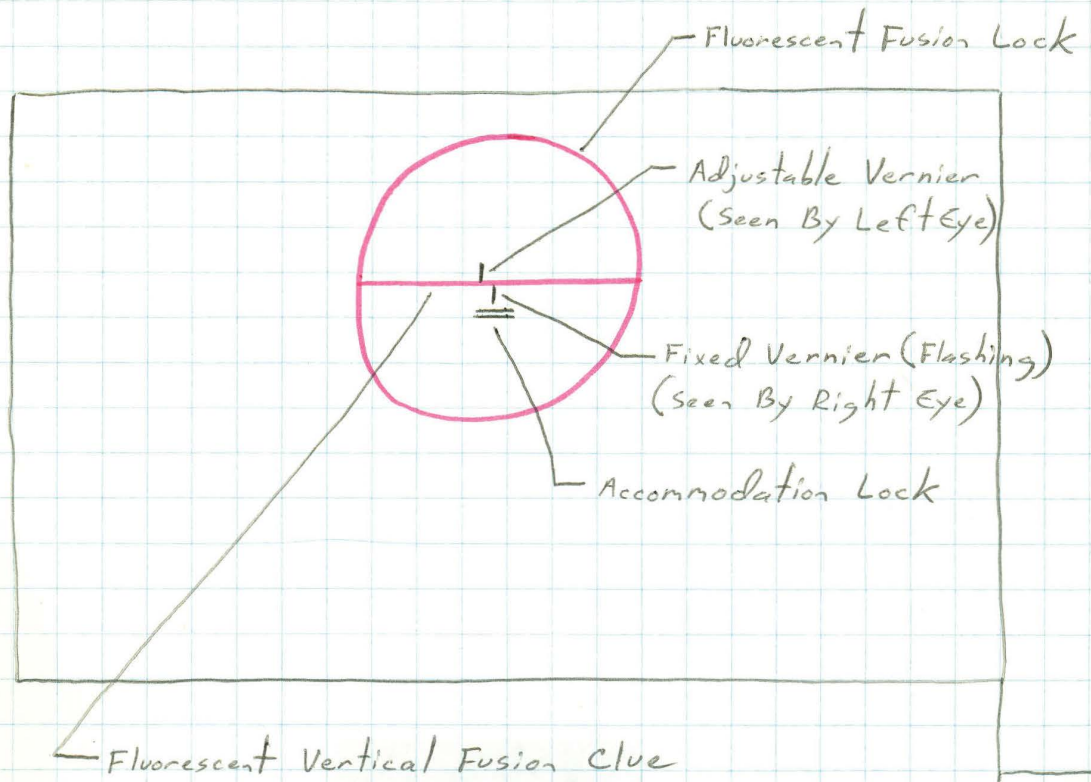 Fluorescent Fusion Lock
Adjustable Vernier
(Seen By Left Eye)
Fixed Vernier (Flashing)
(Seen By Right Eye)
Accommodation Lock
Fluorescent Vertical Fusion Clue